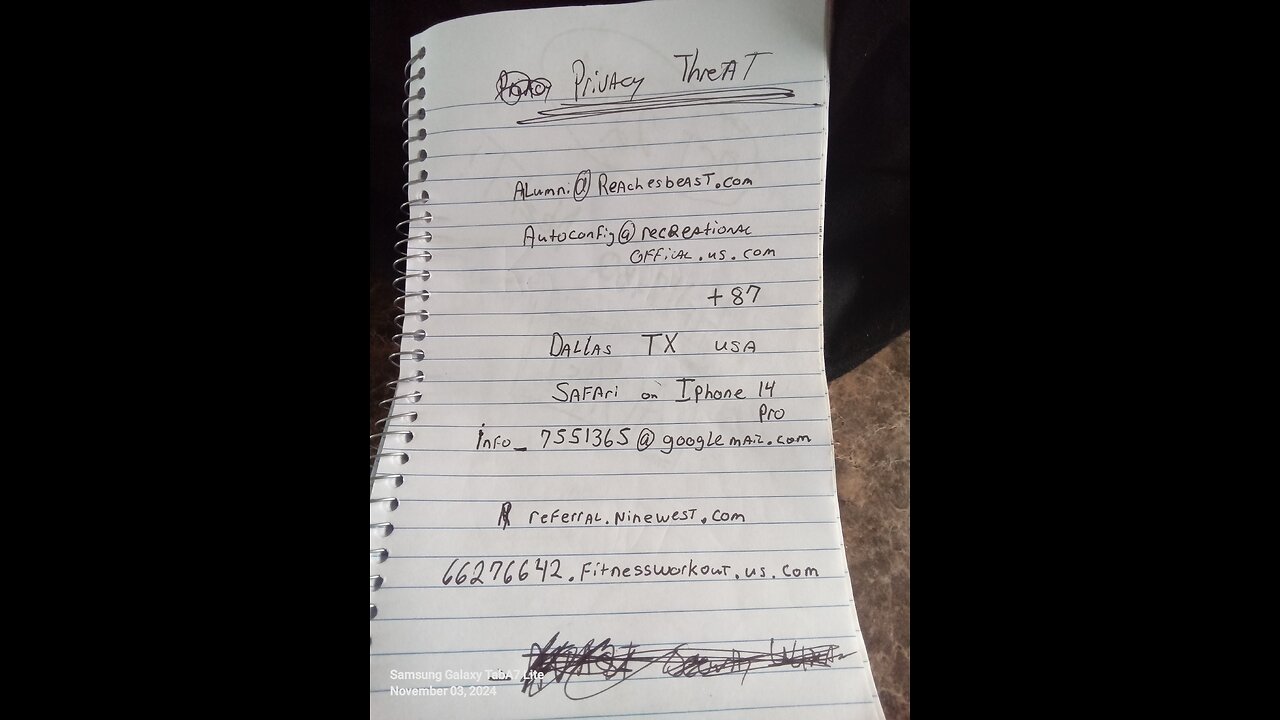 Privacy Threat
Alumni@Reachesbeast.com
Autoconfig@recreational
official.us.com
+87
Dallas TX USA
Safari on Iphone 14
Pro
info_7551365@googlemail.com
referral.ninewest.com
66276642.fitnessworkout.us.com
Samsung Galaxy TabA7 Lite
November 03, 2024